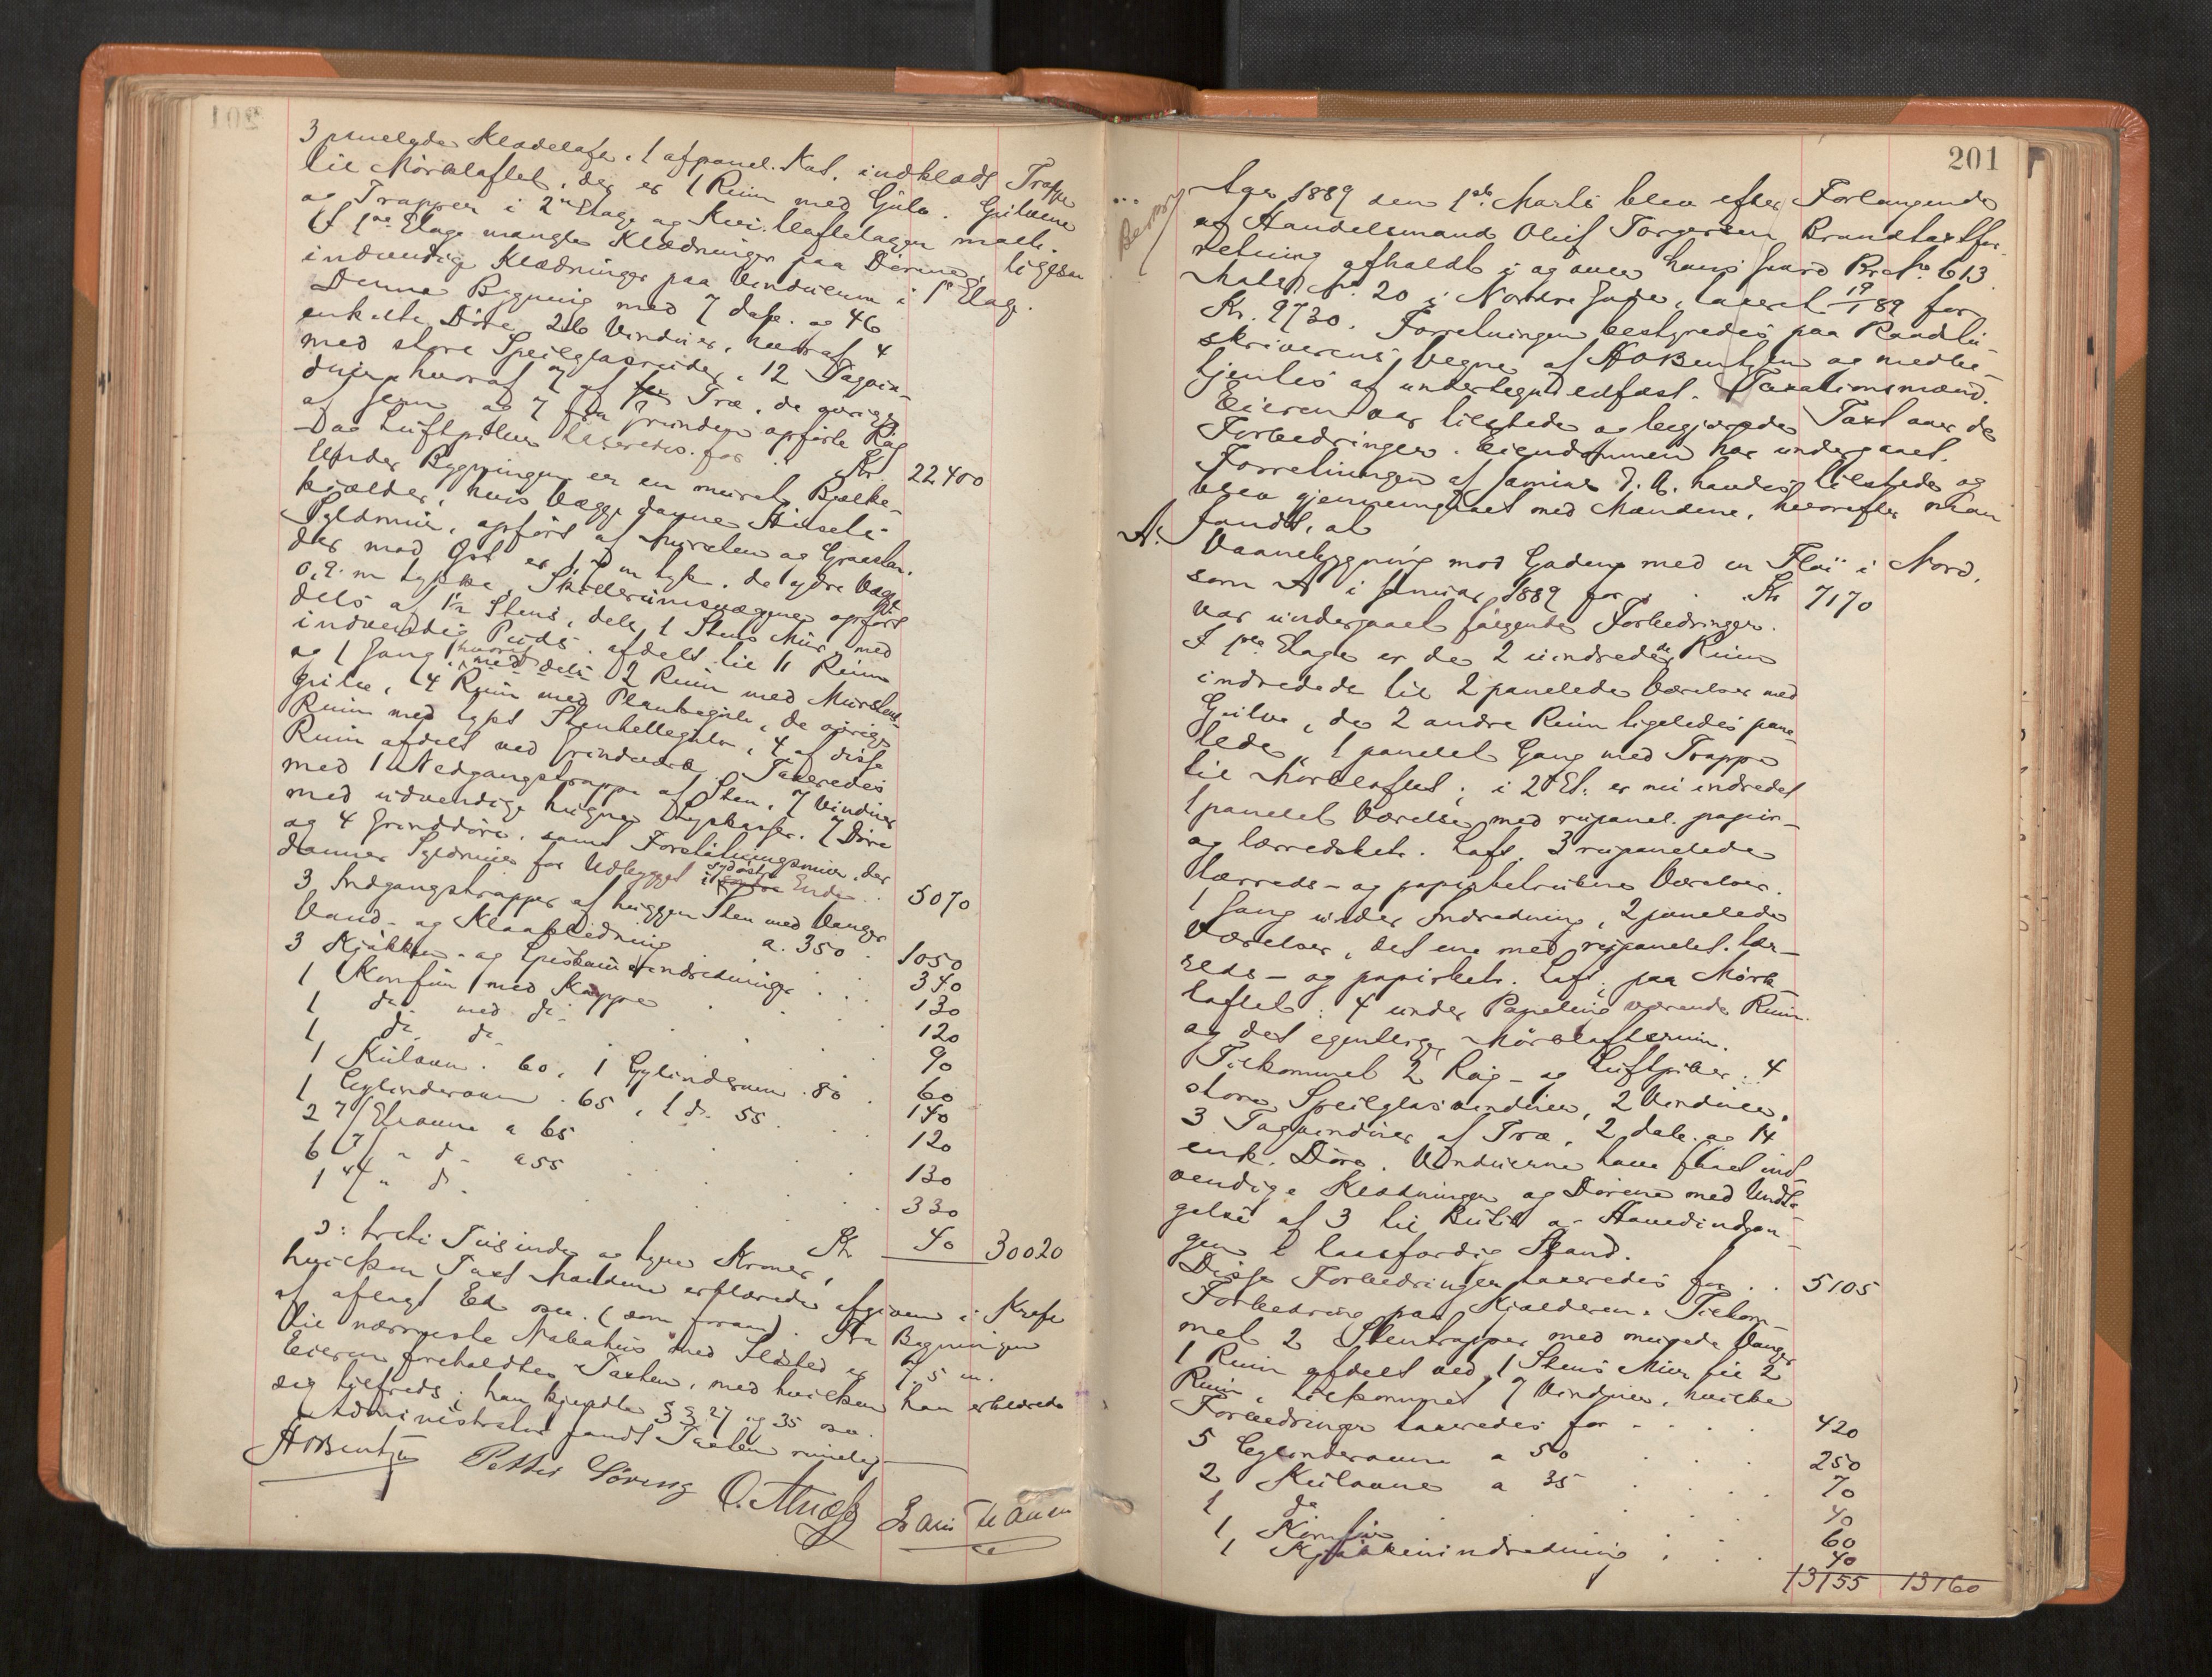 3 panelede Klædelofte, 1 afpanel. Kot, indklædt Trappe
til Mørkloftet, der er 1 Rum med Gulv. Gulvene
og Trapper i 2den Etage og Kvistloftetagen malte.
I 1ste Etage mangler Klædninger paa Dørene, ligesom
indvendige Klædninger paa Vinduerne i 1ste Etage.
Denne Bygning med 7 dob. og 46
enkelte Døre, 26 Vinduer, hvoraf 4
med store Speilglasruder, 12 Tagvin-
duer hvoraf 7 af Træ, de øvrige
af Jern og 7 fra Grunden opførte Røg
og Luftpiber taxeredes for Kr. 22400
Under Bygningen er en muret Bjelke-
kjælder, hvis Vægge danne Husets
Syldmur, opført af Mursten og Graasten.
der mod Øst er 1,7 m tyk, de øvre Vægge
0,9 m tykke, Skillerumsvæggene opført
dels af 1½ Stens, dels 1 Stens Mur, med
indvendig Puds, afdelt til 11 Rum
og 1 Gang, hvoraf 2 Rum med Murstens-
gulve, 4 Rum med Plankegulv, de øvrige
Rum med lagt Stenhellegulv, 4 af disse
Rum afdelt ved Grindværk. Taxeredes
med 1 Nedgangstrappe af Sten, 7 Vinduer
med udvendige hugne Lyskasser, 7 Døre
og 4 Grinddøre, samt Forstøtningsmur, der
danner Syldmur for Udbygget i sydøstre Ende .. 5070
3 Indgangstrapper af huggen Sten med Vanger
a. 350 . 1050
Vand- og Kloakledning . . . 340
3 Kjøkken- og Spiskammerindredninger . . 130
1 Komfur med Kappe . . . 120
1 do. med do. . . . 90
1 do. do. . . . 60
1 Kulovn . 60, 1 Cylinderovn . 80 . 140
1 Cylinderovn . 65, 1 do. 55 . . 120
2 7/ Etovne a 65 . . 130
6 7/ " do. a 55 . . . 330
1 4/ " do. . . . Kr. 40 30020
ɔ: treti Tusinde og tyve Kroner,
hvilken Taxt Mændene erklærede afgiven i Kraft
af aflagt Ed osv. (som foran). Fra Bygningen
til nærmeste Nabohus med Ildsted er 7.5 m.
Eieren foreholdtes Taxten, med hvilken han erklærede
sig tilfreds; han kjendte §§ 27 og 35 osv.
Administrator fandt Taxten rimelig
AOBentzen Petter Søreng O. Alnæs Lars Hansen
201
Aar 1889 den 1ste Marts blev efter Forlangende
af Handelsmand Oluf Torgersen Brandtaxtfor-
retning afholdt i og over hans Gaard Br. No 613
Matr. No. 20 i Nordre Gade, taxeret 19/1 89 for
Kr. 9730. Forretningen bestyredes paa Raadstu-
skriverens Vegne af AOBentzen og medbe-
tjentes af undertegnede edfæst. Taxationsmænd.
Eieren var tilstede og begjærede Taxt over de
Forbedringer, Eiendommen har undergaaet.
Forretningen af Januar d. A. havdes tilstede og
blev gjennemgaaet med Mændene, hvorefter man
fandt, at
A. Vaaningsbygning mod Gaden med en Fløi i Nord,
som A i Januar 1889 for . . Kr 7170
var undergaaet følgende Forbedringer.
I 1ste Etage er de 2 uindredede Rum
indredede til 2 panelede Værelser med
Gulve, de 2 andre Rum ligeledes pane-
lede, 1 panelet Gang med Trappe
til Mørkloftet; i 2den Et. er nu indredet
1 panelet Værelse med rupanel. papir-
og lærredsbetr. Loft, 3 rupanelede
lærreds- og papirbetrukne Værelser.
1 Gang under Indredning, 2 panelede
Værelser, det ene med rupanelet. lær-
reds- og papirbetr. Loft; paa Mørk-
loftet: 4 under Paneling værende Rum.
og det egentlige Mørkloftsrum.
Tilkommet 2 Røg- og Luftpiber, 4
store Speilglasvinduer, 2 Vinduer,
3 Tagvinduer af Træ, 2 dob. og 14
enk. Døre. Vinduerne have faaet ind-
vendige Klædninger og Dørene med Undta-
gelse af 3 til Butik og Hovedindgan-
gen i laasfærdig Stand.
Disse Forbedringer taxeredes for . . 5105
Forbedring paa Kjælderen. Tilkom-
met 2 Stentrapper med murede Vanger
1 Rum afdelt ved 1 Stens Mur til 2
Rum, tilkommet 7 Vinduer, hvilke
Forbedringer taxeredes for . . . . 420
5 Cylinderovne a 50 . . . 250
2 Kulovne a 35 . . . . 70
1 do . . . . 40
1 Komfur . . . . 60
1 Kjøkkenindredning . . . 40
13155 13160